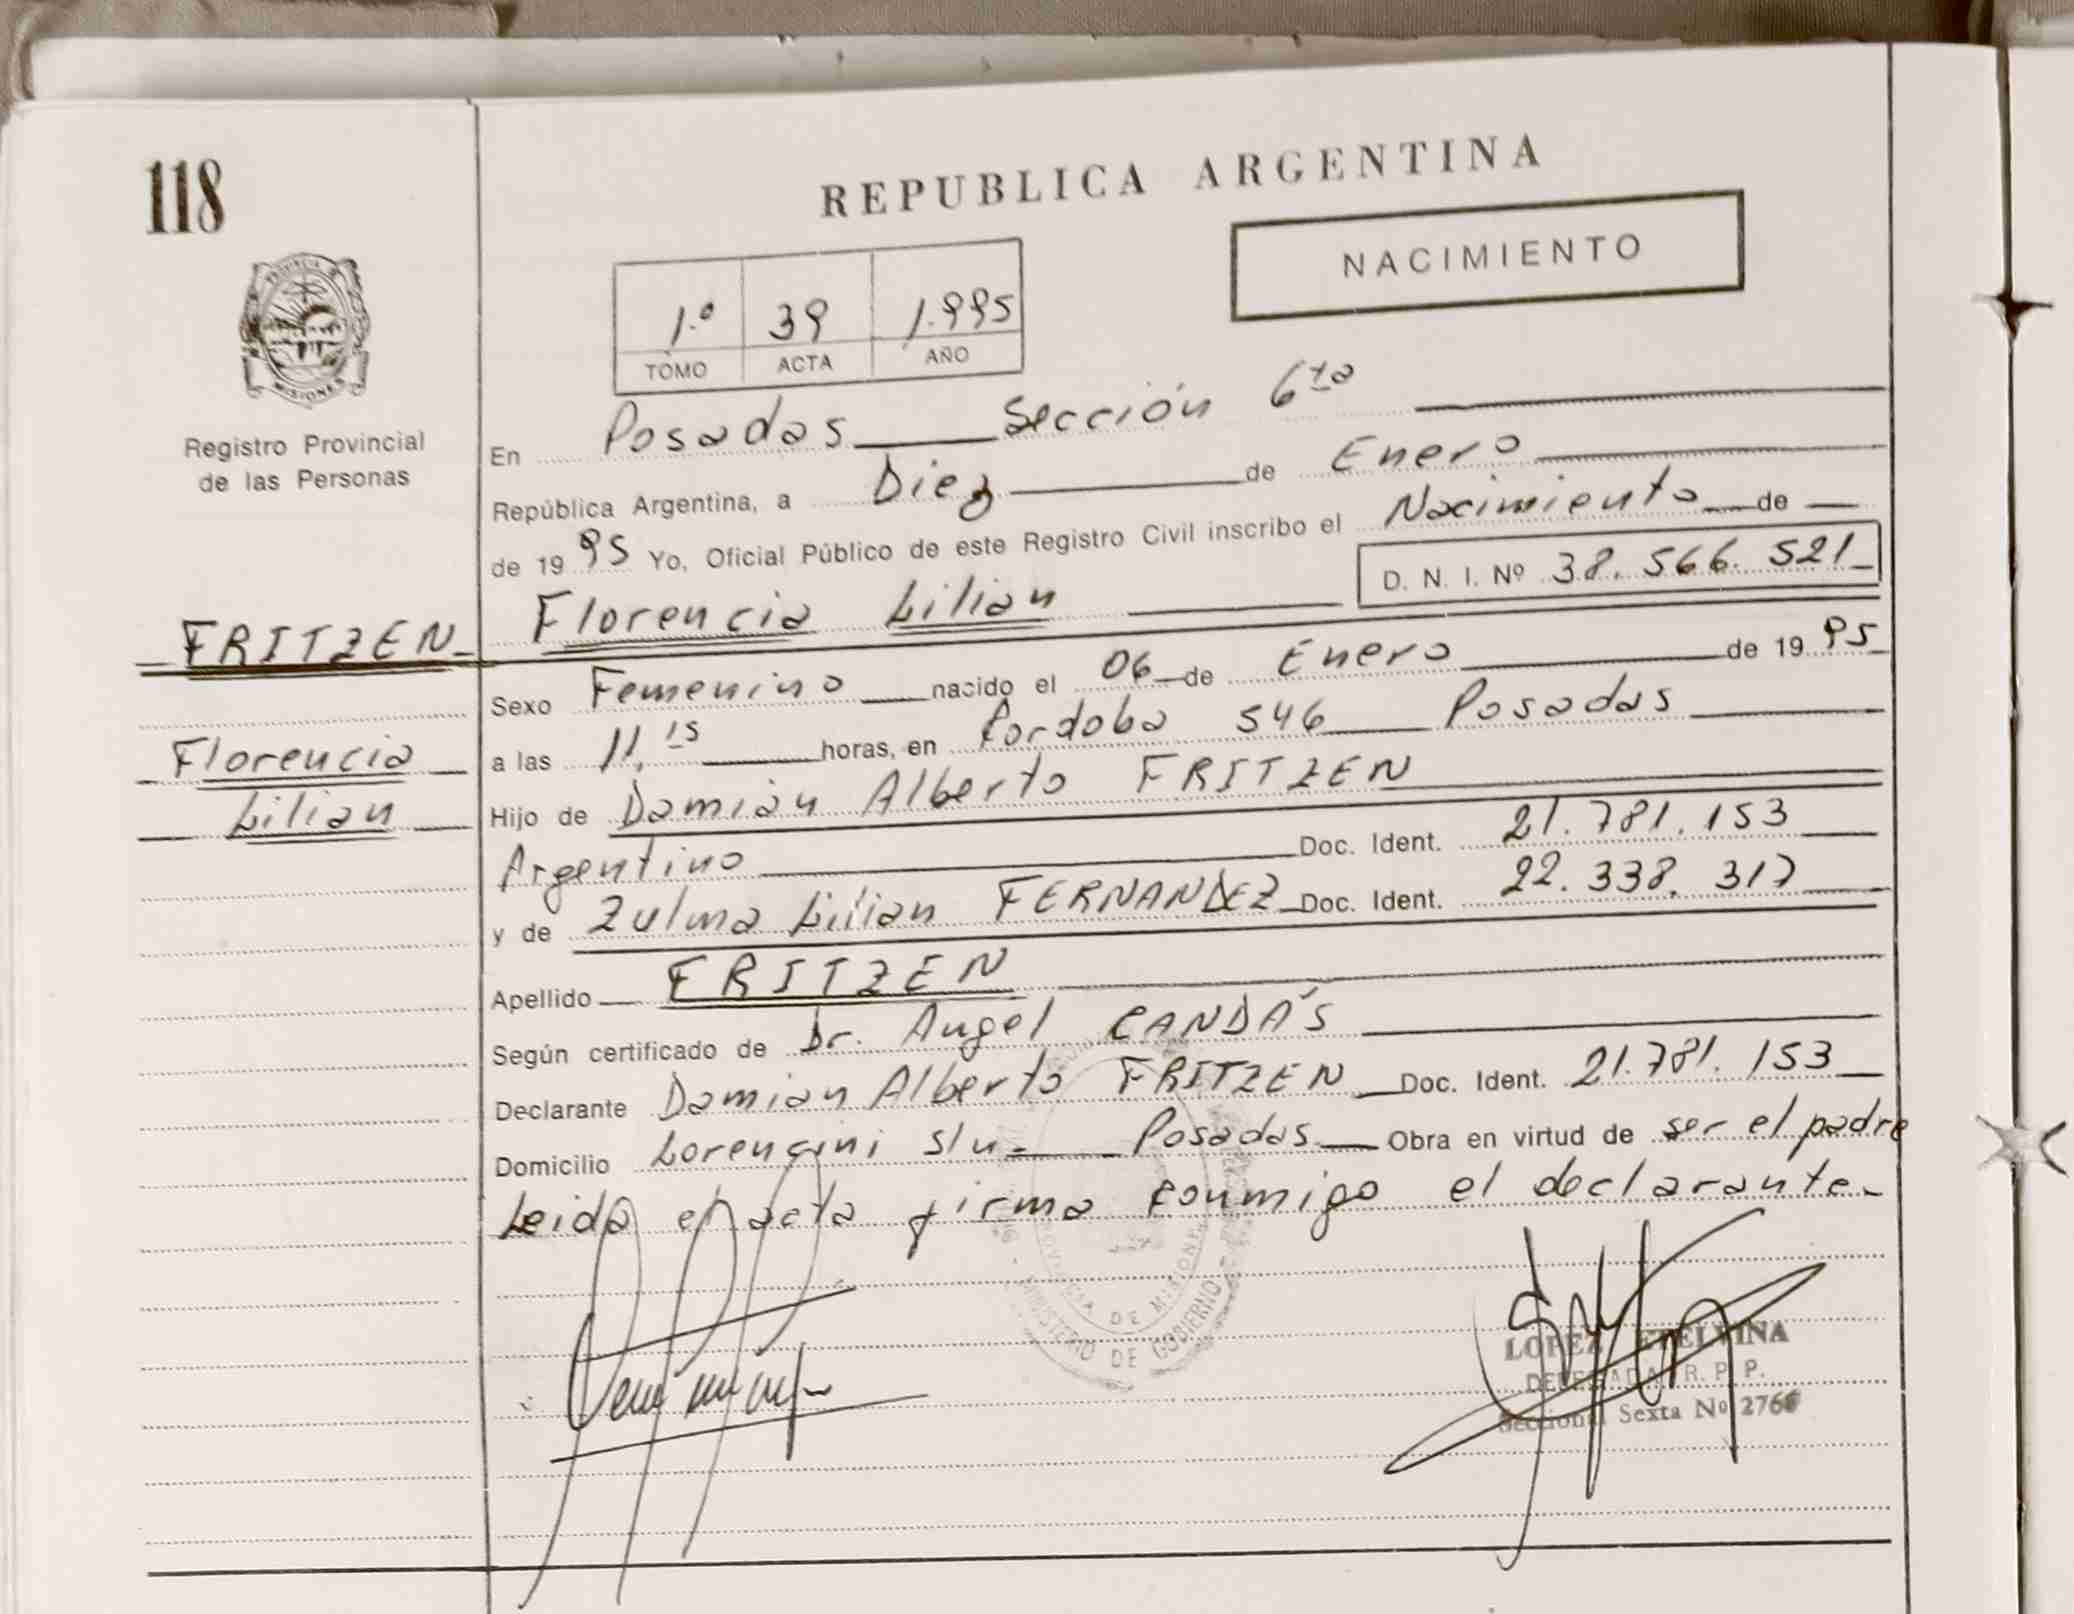 118
REPUBLICA ARGENTINA
NACIMIENTO
1.º 39 1.995
TOMO ACTA AÑO
PROVINCIA
MISIONES
Registro Provincial
de las Personas
En Posadas Sección 6ta
República Argentina, a Diez de Enero
de 1995 Yo, Oficial Público de este Registro Civil inscribo el Nacimiento de
D. N. I. Nº 38.566.521
FRITZEN Florencia Lilian
Sexo Femenino nacido el 06 de Enero de 1995
Florencia
Lilian
a las 11.15 horas, en Cordoba 546 Posadas
Hijo de Damián Alberto FRITZEN
Argentino Doc. Ident. 21.781.153
y de Zulma Lilian FERNANDEZ Doc. Ident. 22.338.317
Apellido FRITZEN
Según certificado de Dr. Angel CANDÁS
Declarante Damian Alberto FRITZEN Doc. Ident. 21.781.153
Domicilio Lorencini s/n. Posadas Obra en virtud de ser el padre
Leida el acta firma conmigo el declarante.
PROVINCIA DE MISIONES
MINISTERIO DE GOBIERNO
LOPEZ ETELVINA
DELEGADA R. P. P.
Seccional Sexta Nº 2766